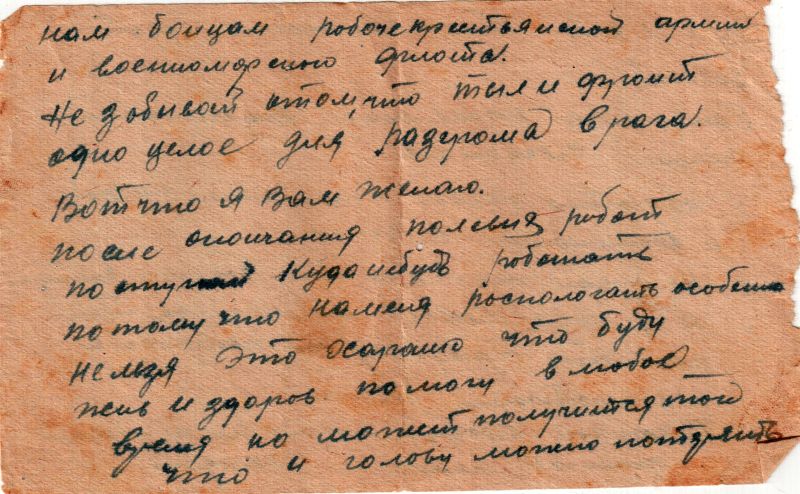 нам бойцам робочекрестьянской армии
и военноморского флота.
Не забывай отом, что тыл и фронт
одно целое для разгрома врага.
Вот что я Вам желаю.
после окончания полевия робот
поступай Куданибудь роботать
потому что наменя роспологать особенно
нельзя это хорошо что буду
жив и здоров помогу в любое
время но может получится той
что и голову можно потерять